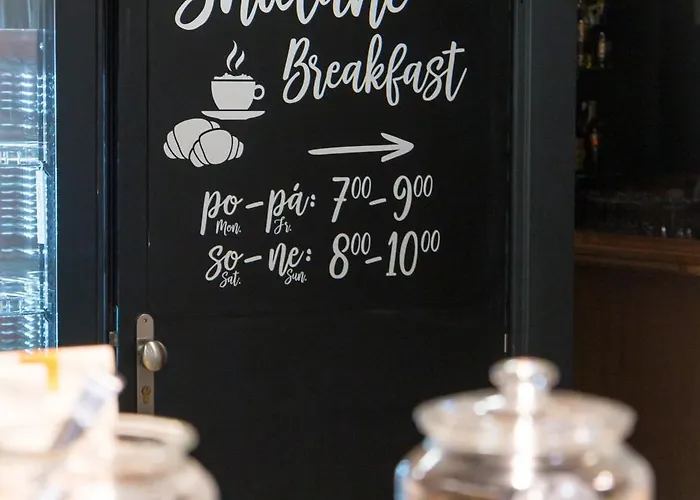 Snídaně
Breakfast
po-pá: 7⁰⁰-9⁰⁰
Mon. Fr.
so-ne: 8⁰⁰-10⁰⁰
Sat. Sun.